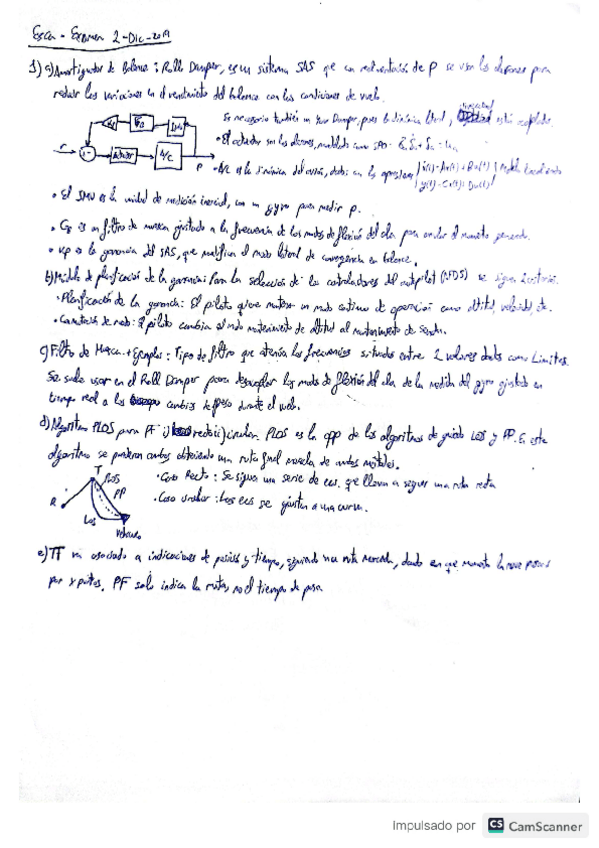 Examen 2-Dic-2019
1) a) Amortiguador de Balance: Roll Damper, es un sistema SAS que con realimentación de P se usan los alerones para
reducir las variaciones en el rendimiento del balance con las condiciones de vuelo.
Es necesario también un Yaw Damper, pues la dinámica lateral, está acoplada.
• El actuador son los alerones, modelado como
• A/C es la dinámica del avión, dada en las
r
A/C
P
• El IMU es la unidad de medición inercial, con un gyro para medir p.
• es un filtro de muesca ajustado a la frecuencia de los modos de flexión del ala para
• Kp es la ganancia del SAS, que modifica el modo lateral de convergencia en balance.
b) Módulo de planificación de la ganancia: Para la selección de los controladores del autopilot (AFDS) se
• Planificación de la ganancia: El piloto quiere mantener un modo continuo de operación como altitud, velocidad, etc.
• Conmutación de modo: El piloto cambia el modo mantenimiento de altitud al mantenimiento de senda.
c) Filtro de Muesca + Ejemplos: Tipo de filtro que atenúa las frecuencias situadas entre 2 valores dados como Límites.
Se suele usar en el Roll Damper para desacoplar los modos de flexión del ala de la medida del gyro ajustado en
tiempo real a los cambios de peso durante el vuelo.
d) Algoritmo PLOS para PF i) recto ii) circular. PLOS es la de los algoritmos de guiado LOS y PP. En este
algoritmo se ponderan ambos obteniendo una ruta final mezcla de ambos métodos.
T
PLOS
PP
R
LOS
Vehículo
• Caso Recto: Se siguen una serie de ecs. que llevan a seguir una ruta recta
• Caso circular: Las ecs se ajustan a una curva.
e) TT va asociado a indicaciones de posición y tiempo, siguiendo una ruta marcada, dando en que momento la nave pasará
por x puntos. PF solo indica la ruta, no el tiempo de paso.
Impulsado por CS CamScanner